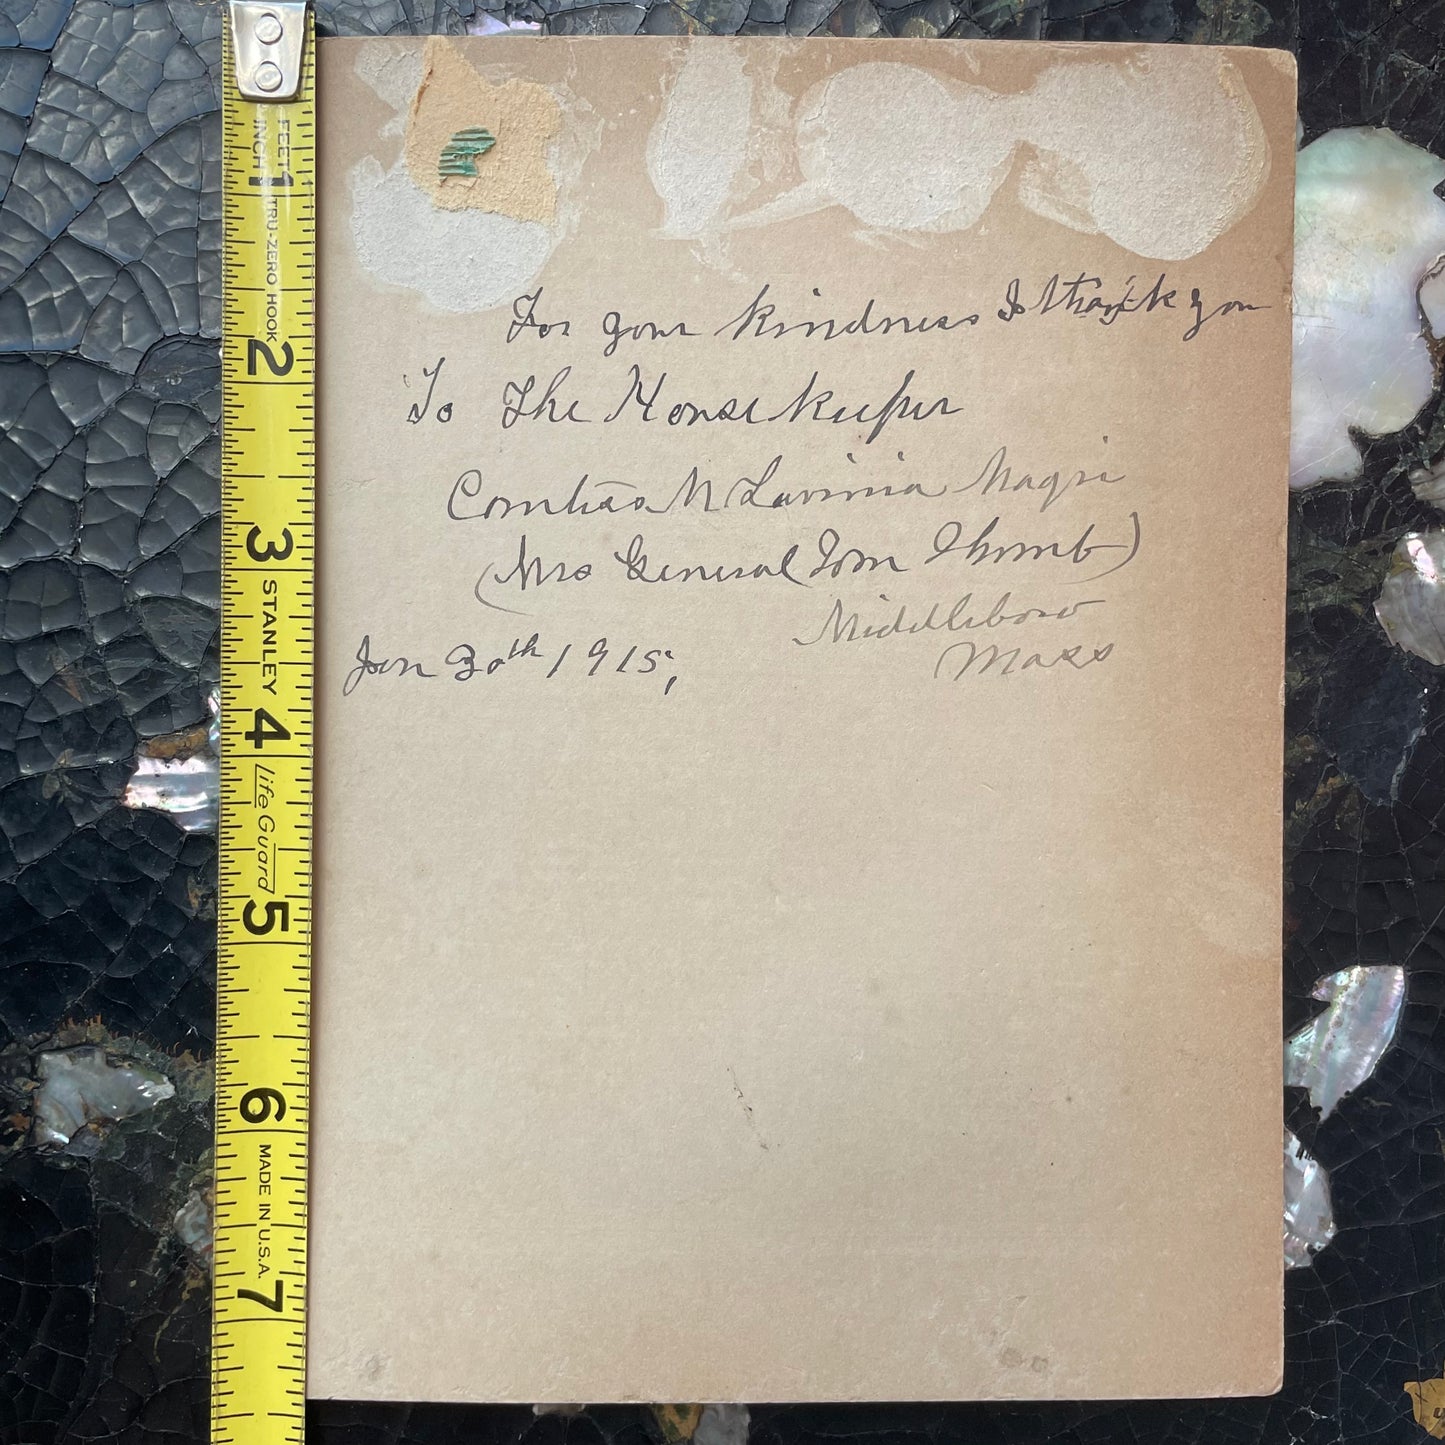 For your kindness I thank you
To The House Keeper
Comtess M Lavinia Magri
(Mrs General (Tom Thumb)
Middleboro
Mass
Jan 30th 1915,
FEET 1
INCH
TRU-ZERO HOOK
2
3
STANLEY
4
Life Guard
5
6
MADE IN U.S.A.
7